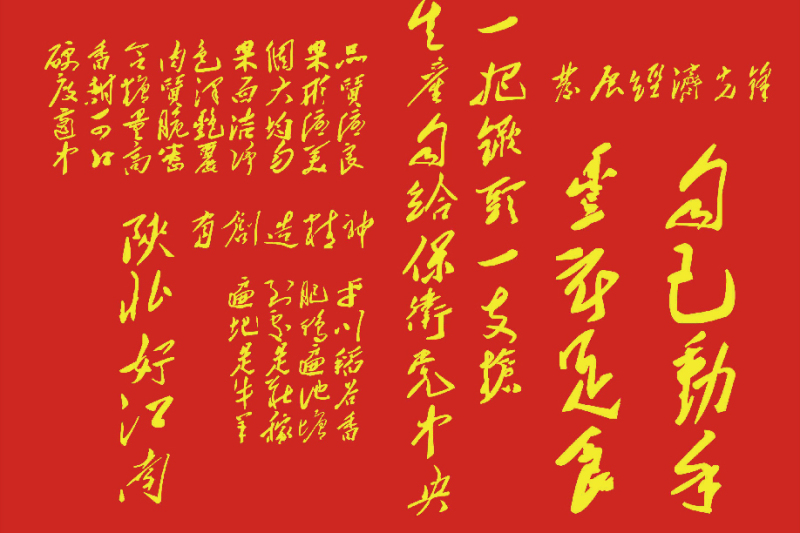 發展經濟先鋒
自己動手
豐衣足食
一把鐝頭一支槍
生產自給保衛党中央
品質優良
果形優美
個大均勻
果面洁净
色澤艷麗
肉質脆密
含糖量高
香甜可口
硬度適中
有創造精神
平川稻谷香
肥鴨遍池塘
到処是莊稼
遍地是牛羊
陝北好江南